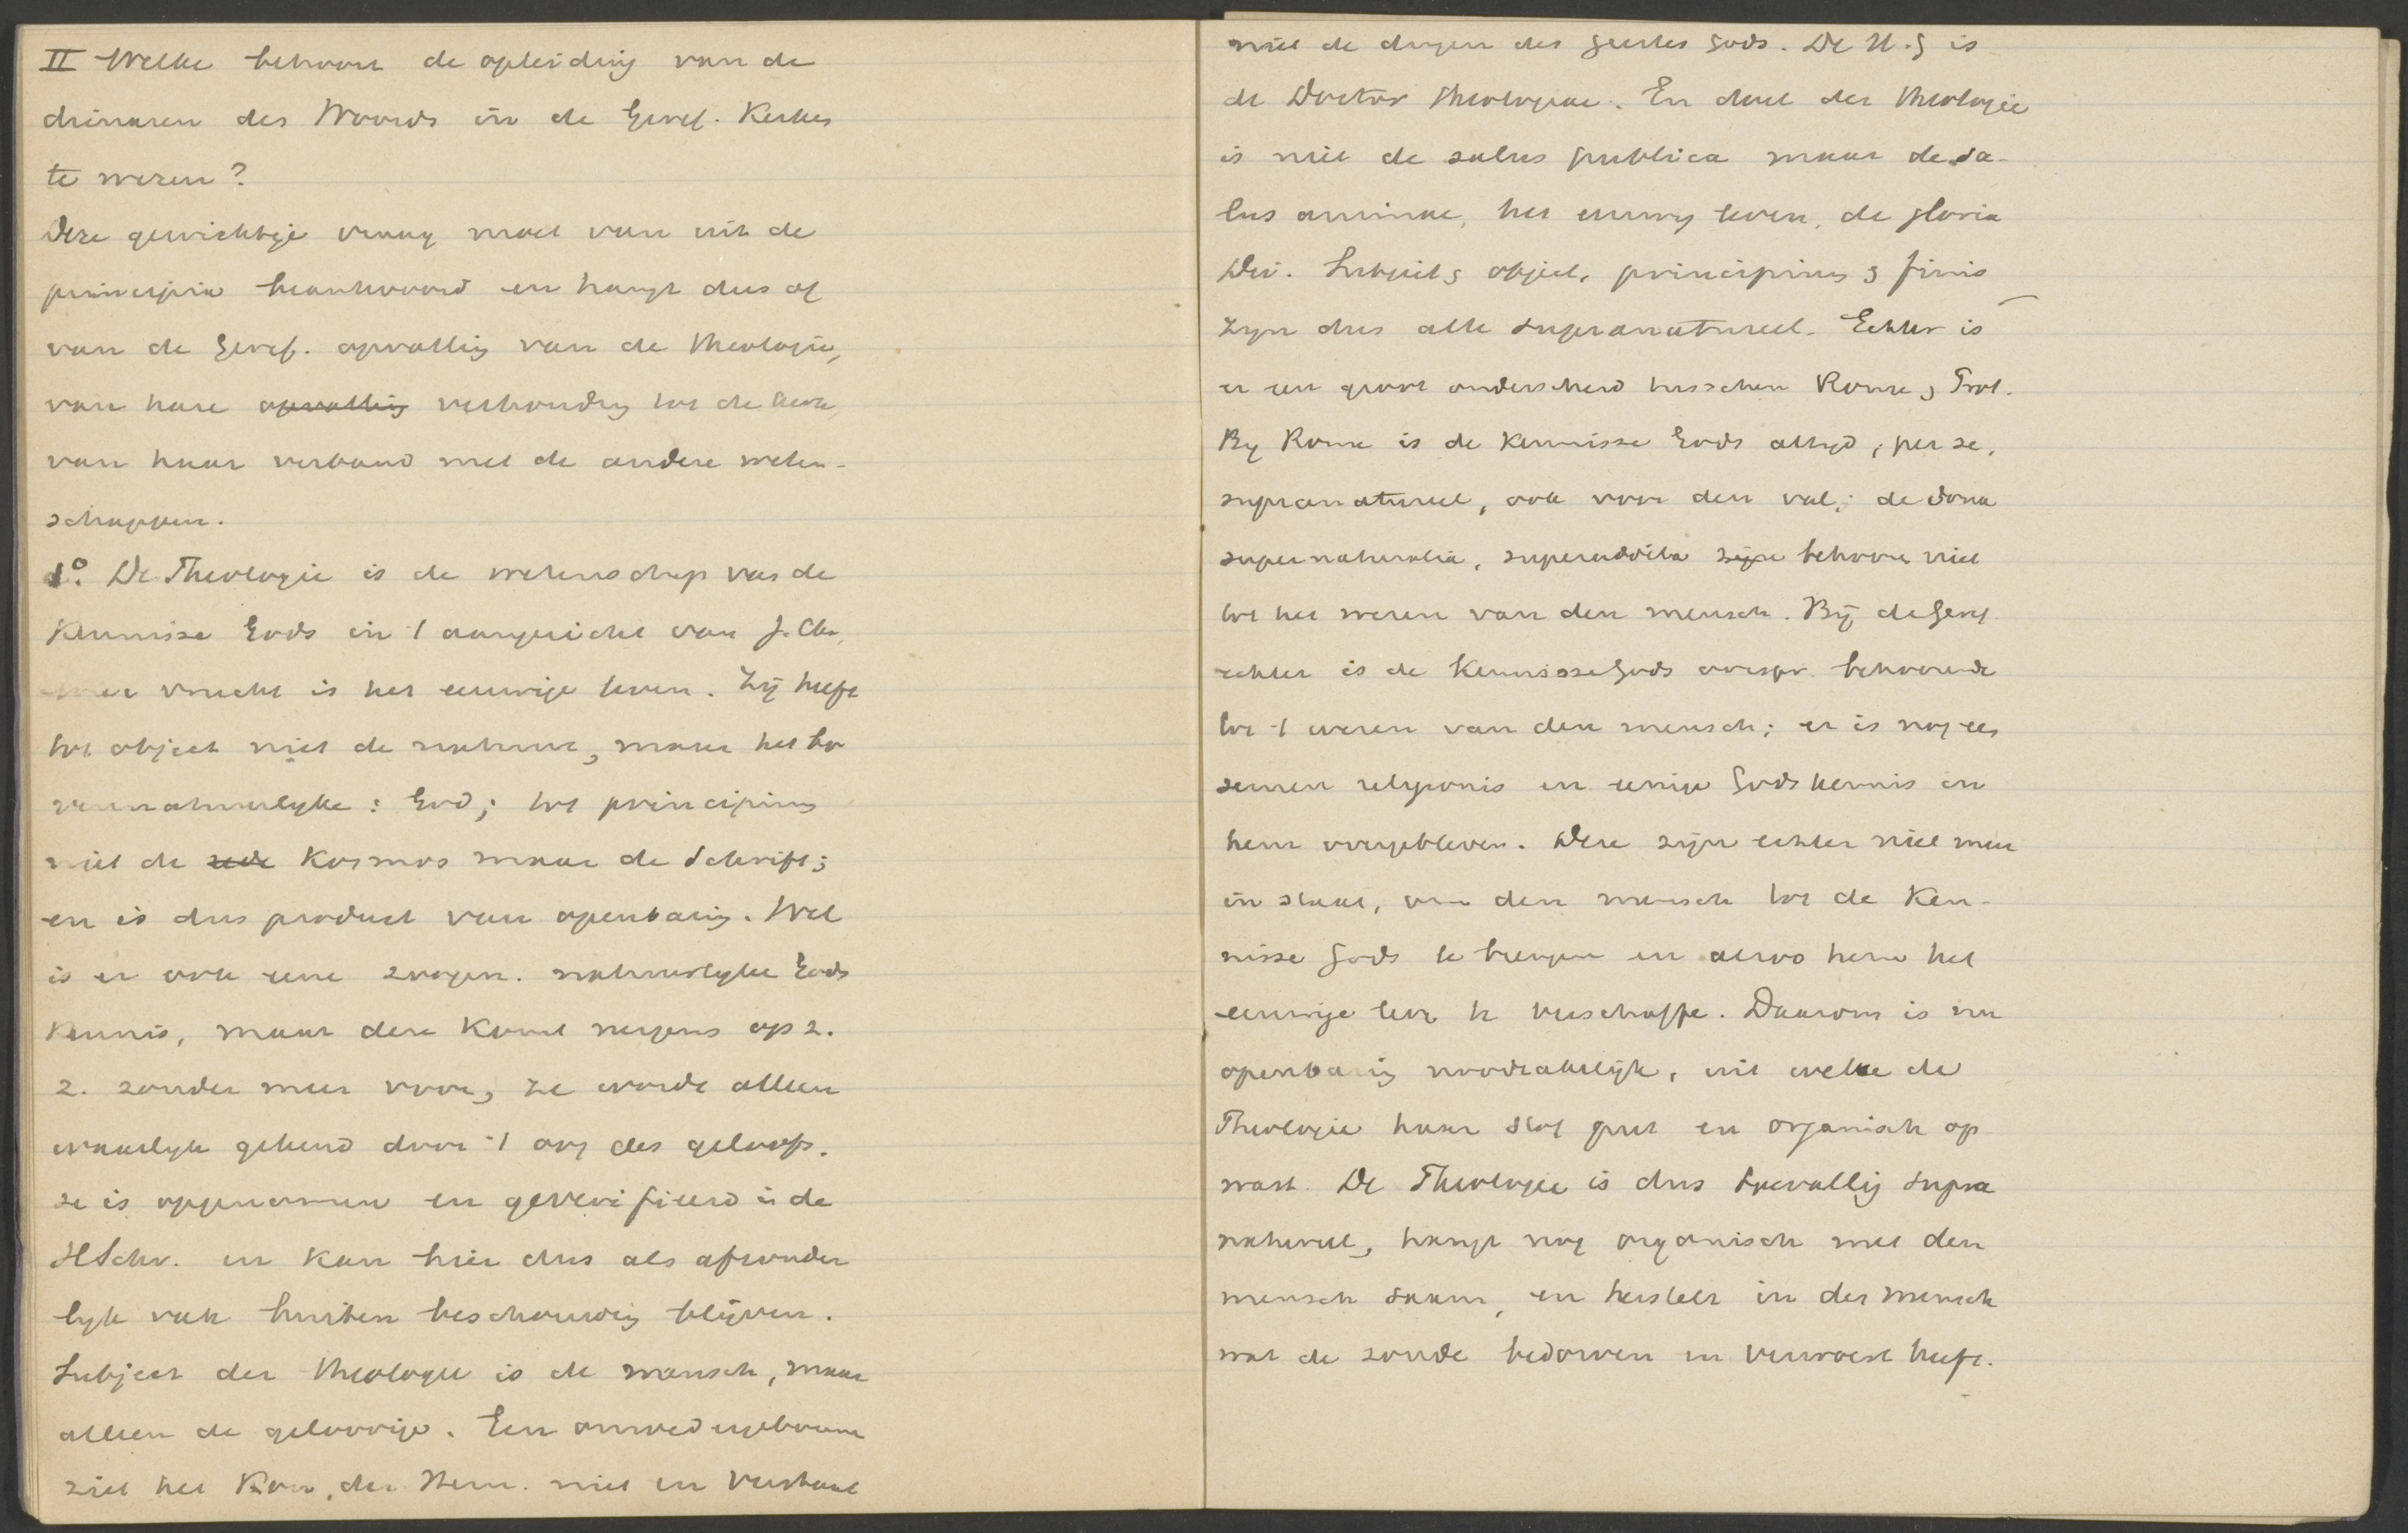 II Welke behoort de opleiding van de
dienaren des Woords in de Geref. Kerken
te wezen?
Deze gewichtige vraag moet van uit de
principia beantwoord en hangt dus af
van de Geref. opvatting van de theologie,
van hare opvatting verhouding tot de kerk
van haar verband met de andere weten-
schappen.
1o. De Theologie is de wetenschap van de
Kennisse Gods in 't aangezicht van J. Chr.
wier vrucht is het eeuwige leven. Zij heeft
tot object niet de natuur, maar het bo
vennatuurlyke: God; tot principium
niet de rede Kosmos maar de Schrift;
en is dus product van openbaring. Wel
is er ook eene zoogen. natuurlyke Gods
Kennis, maar deze komt nergens op z.
z. zonder meer voor, ze wordt alleen
waarlyk gekend door 't oog des geloofs.
ze is opgenomen en geverifieerd in de
HSchr. en kan hier dus als afzonder
lyk vak buiten beschouwing blijven.
Subject der theologie is de mensch, maar
alleen de geloovige. Een onwedergeboorne
ziet het Kon. der Hem. niet en verstaat
niet de dingen des Geestes Gods. De H.G is
de Doctor theologiae. En doel der theologie
is niet de salus publica maar de sa-
lus animae, het eeuwig leven, de gloria
Dei. Subject, object, principium, finis
zyn dus alle supranatureel. Echter is
er een groot onderscheid tusschen Rome, Prot.
By Rome is de kennisse Gods altyd, per se,
supranatureel, ook voor den val; de dona
supernaturalia, superaddita zijn behooren niet
tot het wezen van den mensch. Bij de Geref.
echter is de Kennisse Gods oorspr. behoorende
tot 't wezen van den mensch; er is nog een
semen religionis en eenige Godskennis in
hem overgebleven. Deze zijn echter niet meer
in staat, om den mensch tot de Ken-
nisse Gods te brengen en alzoo hem het
eeuwige leven te verschaffen. Daarom is nu
openbaring noodzakelijk, uit welke de
Theologie haar stof put en organisch op
wast. De Theologie is dus toevallig supra
natureel, hangt nog organisch met den
mensch saam, en herstelt in den mensch
wat de zonde bedorven en verwoest heeft.